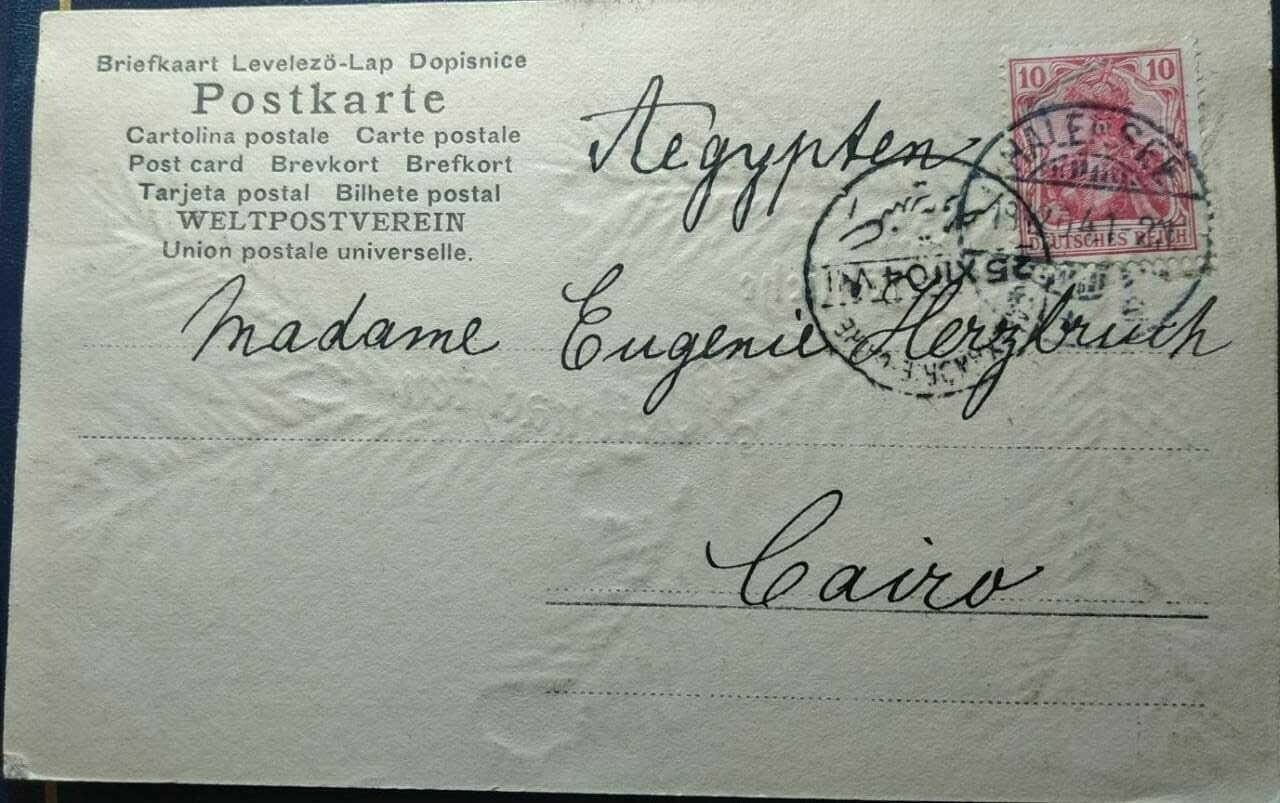 Briefkaart Levelező-Lap Dopisnice
Postkarte
Cartolina postale Carte postale
Post card Brevkort Brefkort
Tarjeta postal Bilhete postal
WELTPOSTVEREIN
Union postale universelle.
10 10
DEUTSCHES REICH
HALENSEE
Aegypten
25 XI 04
CAIRE
Madame Eugenie Herzbruch
Cairo